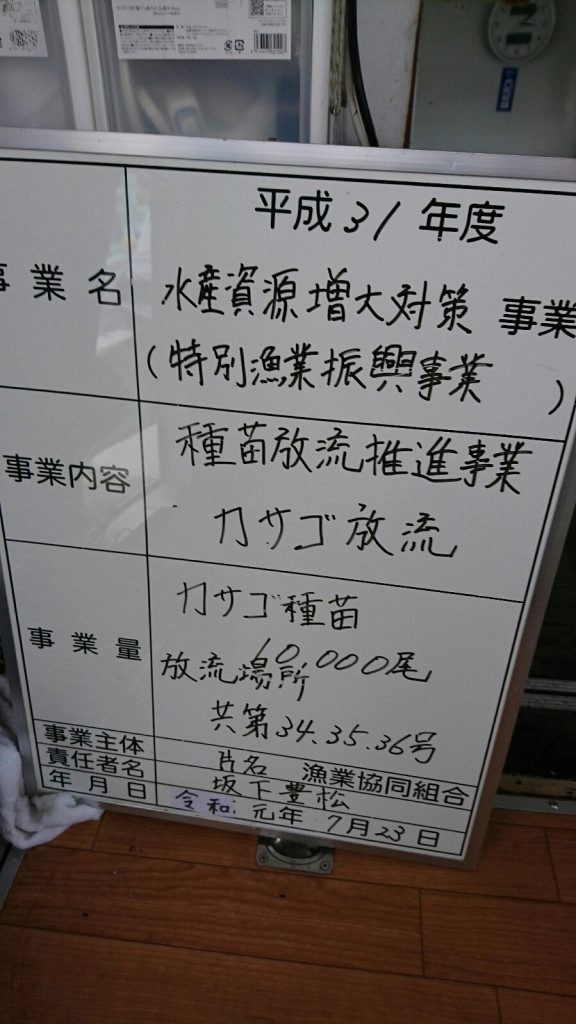 平成 31 年度
事業名 水産資源増大対策 事業
(特別漁業振興事業 )
事業内容 種苗放流推進事業
カサゴ放流
カサゴ種苗
事業量 10,000尾
放流場所
共第34.35.36号
事業主体 片名 漁業協同組合
責任者名 坂下豊松
年月日 令和 元年 7月23日